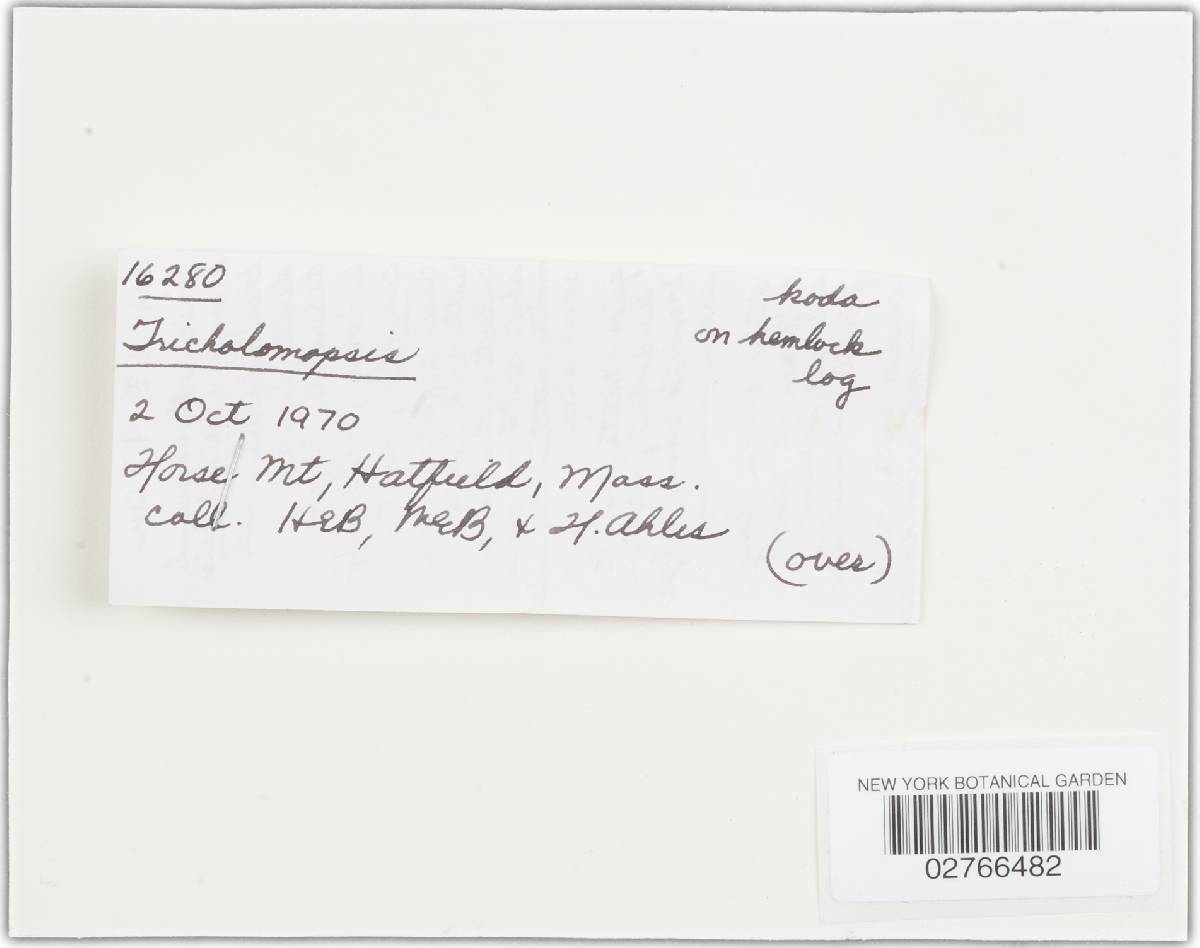 16280
Tricholomopsis
koda
on hemlock
log
2 Oct 1970
Horse Mt, Hatfield, Mass.
coll. HEB, MEB, & H. Ahles
(over)
NEW YORK BOTANICAL GARDEN
02766482